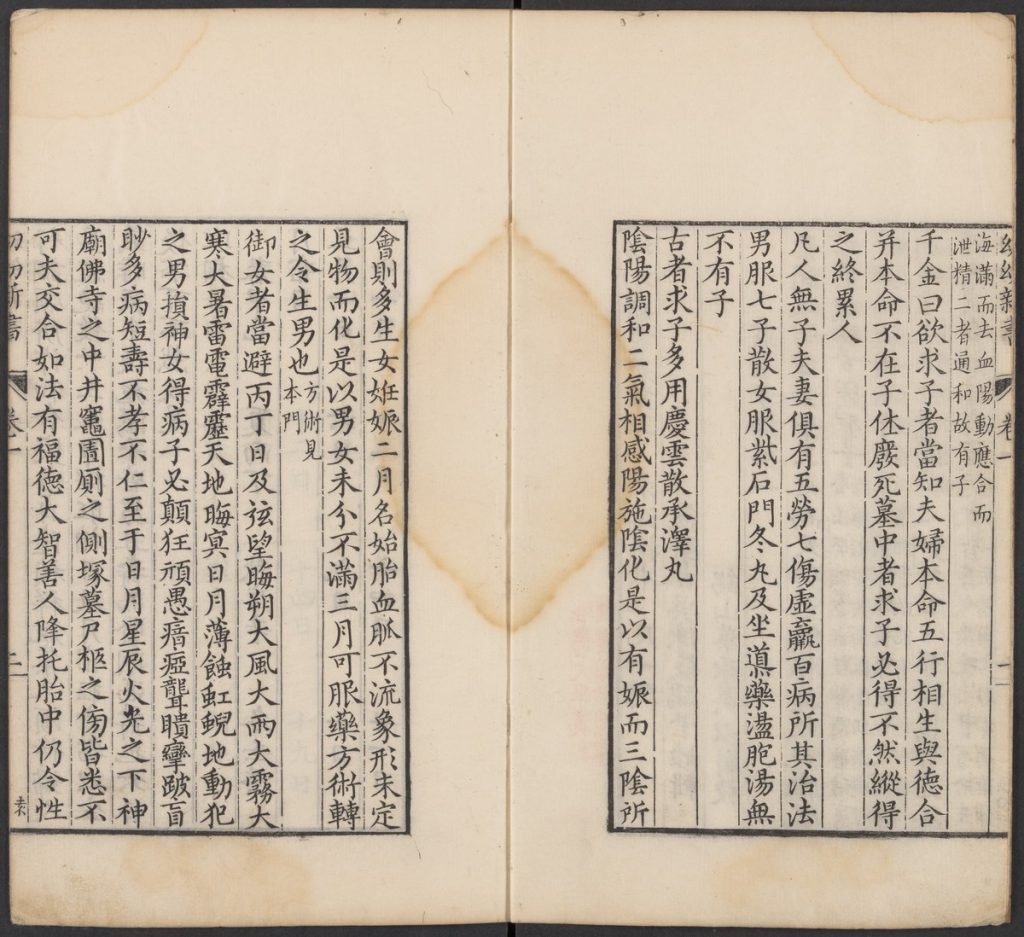 幼幼新書 卷一 二
海滿而去血陽動應合而
泄精二者通和故有子
千金曰欲求子者當知夫婦本命五行相生與德合
并本命不在子休廢死墓中者求子必得不然縱得
之終累人
凡人無子夫妻俱有五勞七傷虛羸百病所其治法
男服七子散女服紫石門冬丸及坐導藥盪胞湯無
不有子
古者求子多用慶雲散承澤丸
陰陽調和二氣相感陽施陰化是以有娠而三陰所
會則多生女姙娠二月名始胎血脈不流象形未定
見物而化是以男女未分不滿三月可服藥方術轉
之令生男也方術見
本門
御女者當避丙丁日及弦望晦朔大風大雨大霧大
寒大暑雷電霹靂天地晦冥日月薄蝕虹蜺地動犯
之男損神女得病子必顛狂頑愚瘖瘂聾聵攣跛盲
眇多病短壽不孝不仁至于日月星辰火光之下神
廟佛寺之中井竈圊厠之側塚墓尸柩之傍皆悉不
可夫交合如法有福德大智善人降托胎中仍令性
幼幼新書 卷一 二